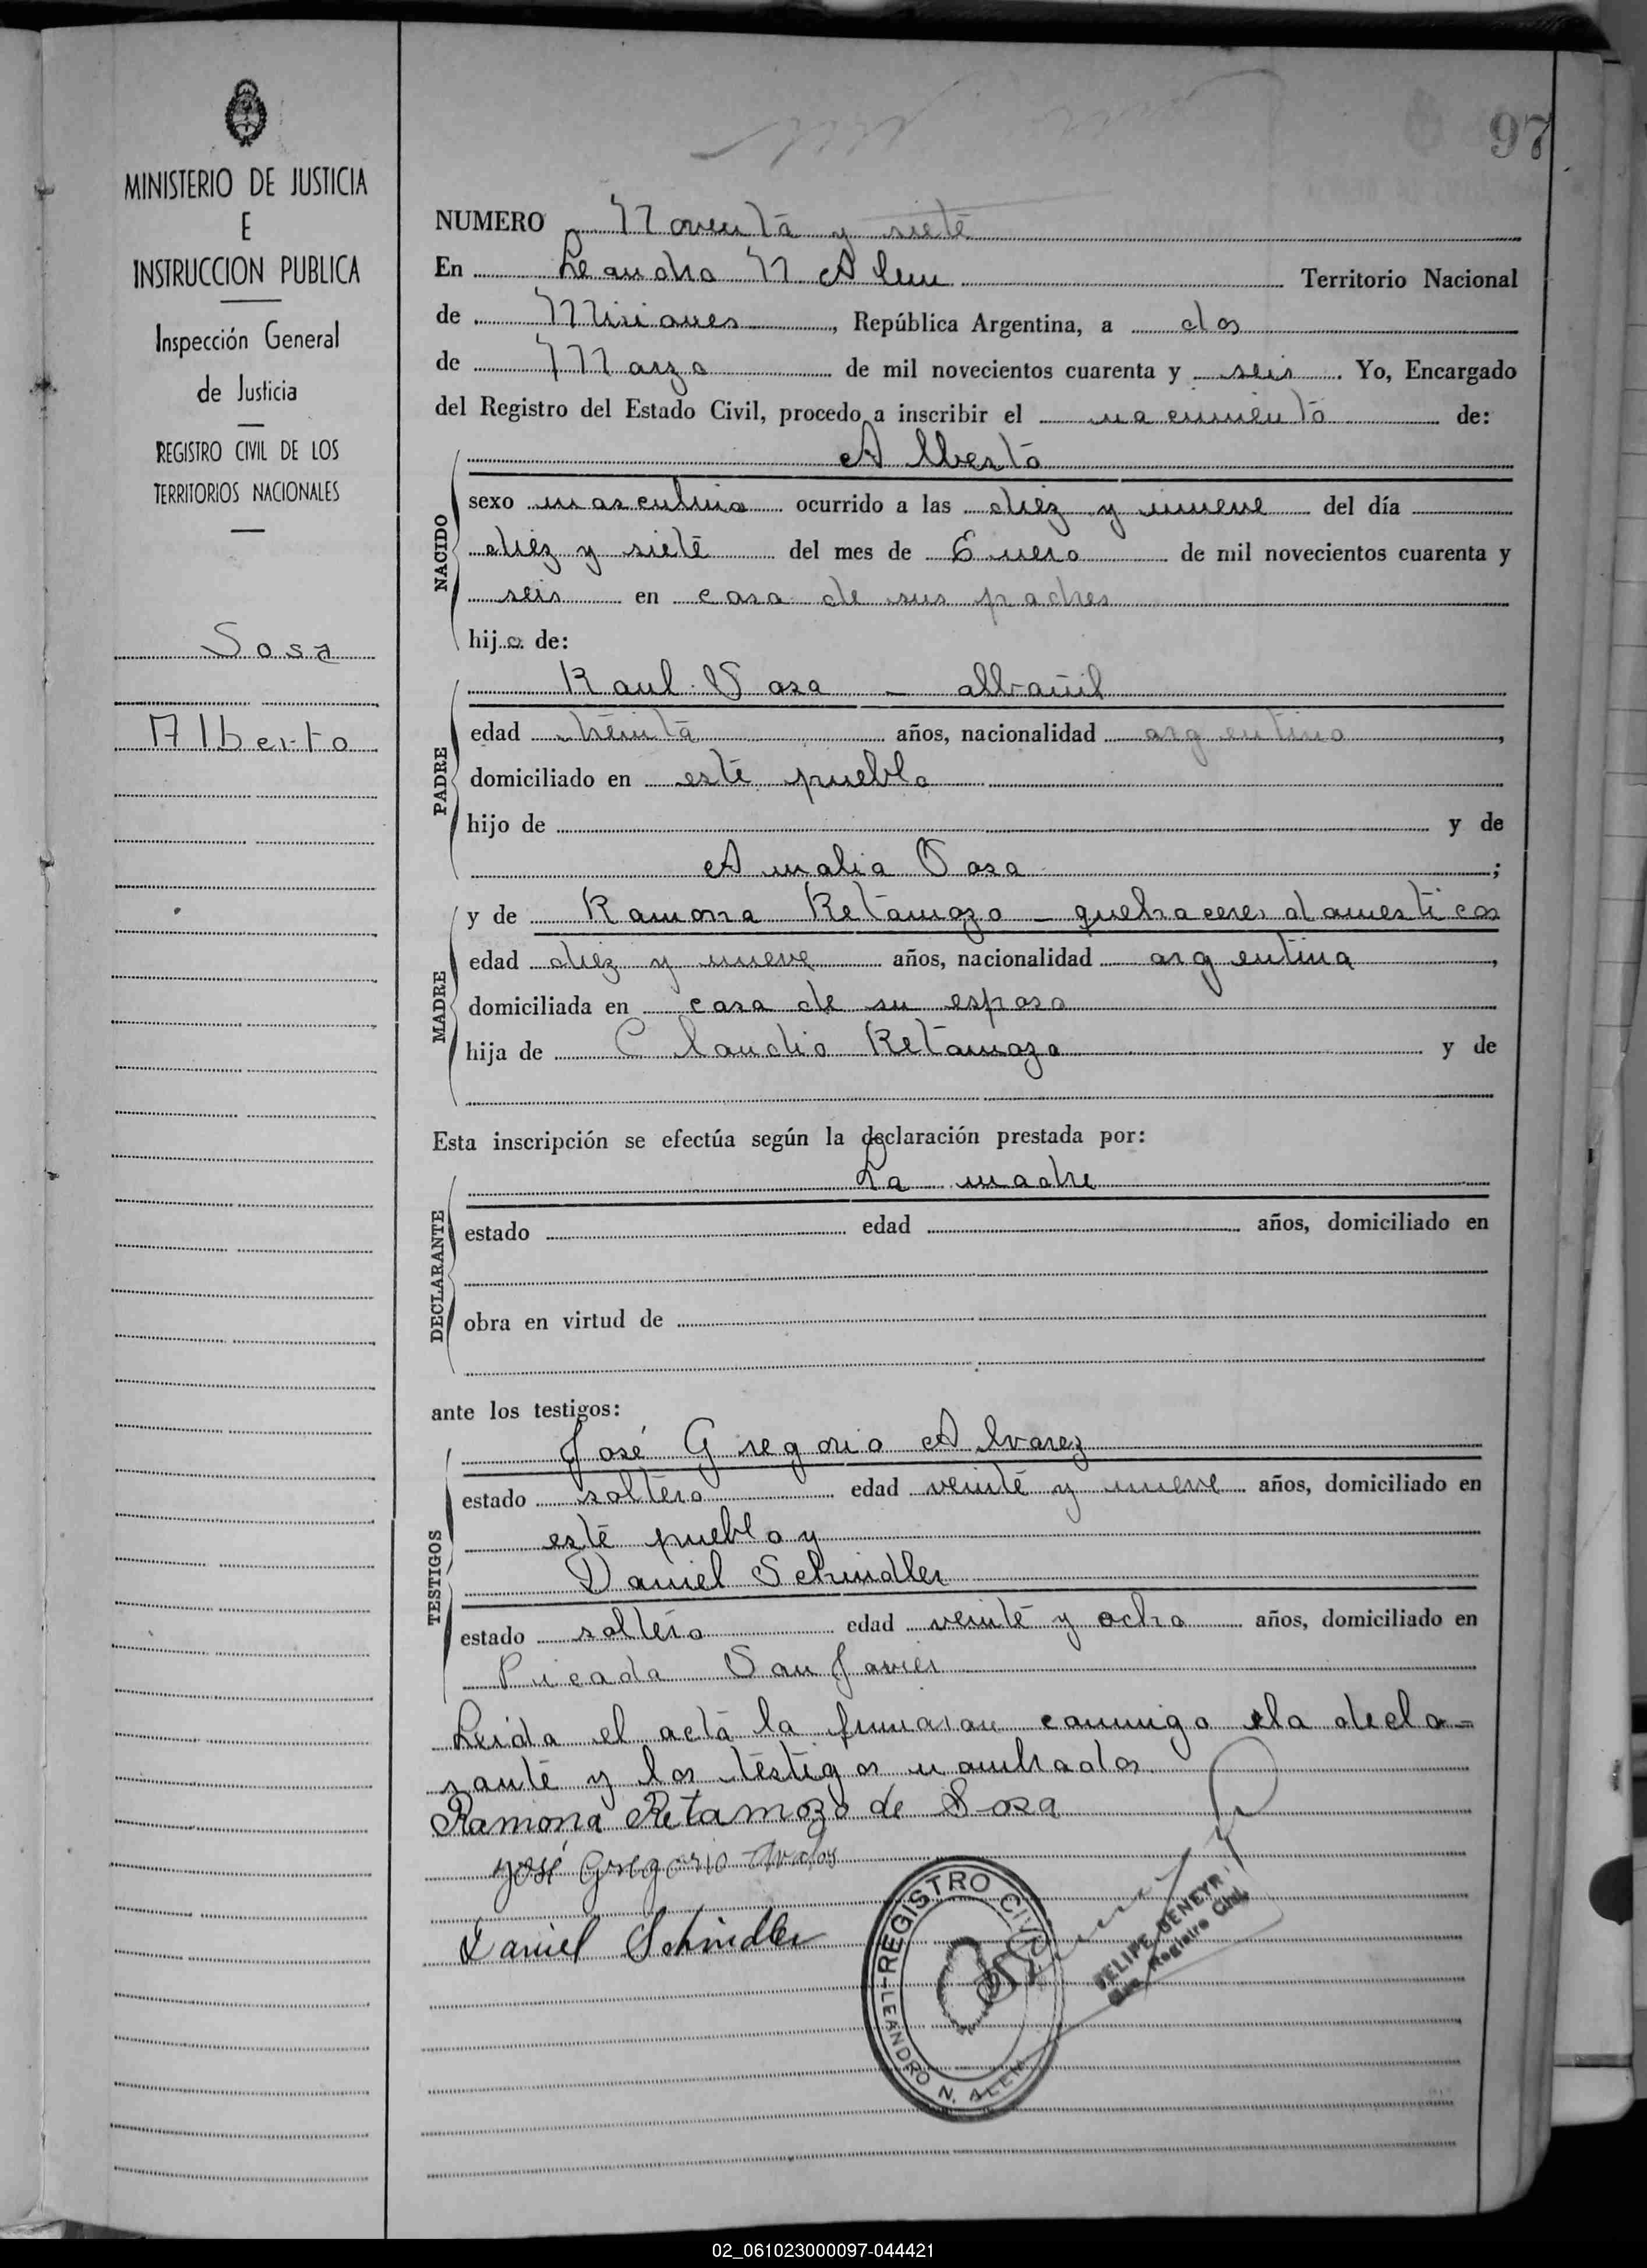 97
MINISTERIO DE JUSTICIA
E
INSTRUCCION PUBLICA
Inspección General
de Justicia
REGISTRO CIVIL DE LOS
TERRITORIOS NACIONALES
Sosa
Alberto
NUMERO Noventa y siete
En Leandro N Alem Territorio Nacional
de Misiones, República Argentina, a dos
de Marzo de mil novecientos cuarenta y seis. Yo, Encargado
del Registro del Estado Civil, procedo a inscribir el nacimiento de:
NACIDO
Alberto
sexo masculino ocurrido a las diez y nueve del día
diez y siete del mes de Enero de mil novecientos cuarenta y
seis en casa de sus padres
hijo de:
PADRE
Raul Sosa - albañil
edad treinta años, nacionalidad argentino,
domiciliado en este pueblo
hijo de y de
Amalia Sosa;
MADRE
y de Ramona Retamozo - quehaceres domesticos
edad diez y nueve años, nacionalidad argentina,
domiciliada en casa de su esposo
hija de Claudio Retamozo y de
Esta inscripción se efectúa según la declaración prestada por:
DECLARANTE
La madre
estado edad años, domiciliado en
obra en virtud de
ante los testigos:
TESTIGOS
José Gregorio Alvarez
estado soltero edad veinte y nueve años, domiciliado en
este pueblo y
Daniel Schindler
estado soltero edad veinte y ocho años, domiciliado en
Picada San Javier
Leida el acta la firmaran conmigo la decla=
rante y los testigos nombrados
Ramona Retamozo de Sosa
José Gregorio
Daniel Schindler
REGISTRO CIVIL
LEANDRO N. ALEM
FELIPE
Registro Civil
02_061023000097-044421